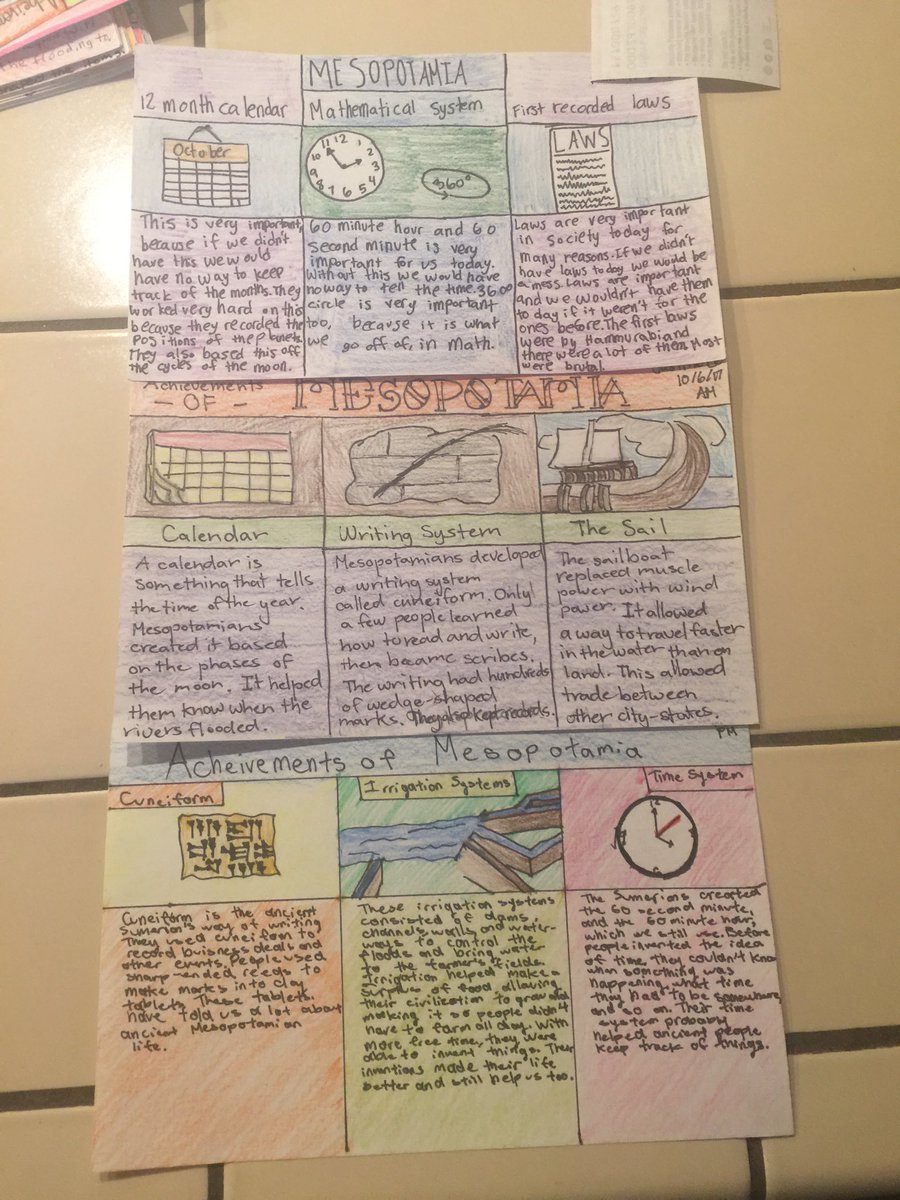 the flooding to
MESOPOTAMIA
12 month calendar
Mathematical system
First recorded laws
October
12
11
1
10
2
9
3
8
4
7
6
5
360°
LAWS
This is very important,
because if we didn't
have this we would
have no way to keep
track of the months. They
worked very hard on this
because they recorded the
positions of the planets.
They also based this off
the cycles of the moon.
60 minute hour and 60
second minute is very
important for us today.
Without this we would have
no way to tell the time. 360°
circle is very important
too, because it is what
we go off of, in math.
Laws are very important
in society today for
many reasons. If we didn't
have laws today we would be
a mess. Laws are important
and we wouldn't have them
today if it weren't for the
ones before. The first laws
were by Hammurabi and
there were a lot of them. Most
were brutal.
Achievements
- OF -
MESOPOTAMIA
10/6/17
AM
Calendar
Writing System
The Sail
A calendar is
something that tells
the time of the year.
Mesopotamians
created it based
on the phases of
the moon. It helped
them know when the
rivers flooded.
Mesopotamians developed
a writing system
called cuneiform. Only
a few people learned
how to read and write,
then became scribes.
The writing had hundreds
of wedge-shaped
marks. They also kept records.
The sailboat
replaced muscle
power with wind
power. It allowed
a way to travel faster
in the water than on
land. This allowed
trade between
other city-states.
PM
Acheivements of Mesopotamia
Cuneiform
Irrigation Systems
Time System
12
Cuneiform is the ancient
Sumarian's way of writing
They used cuneiform to
record business deals and
other events. People used
sharp-ended reeds to
make marks into clay
tablets. These tablets
have told us a lot about
ancient Mesopotamian
life.
These irrigation systems
consisted of dams,
channels, walls, and water-
ways to control the
floods and bring water
to the farmer's fields.
Irrigation helped make a
surplus of food, allowing
their civilization to grow and
making it so people didn't
have to farm all day. With
more free time, they were
able to invent things. Their
inventions made their life
better and still help us too.
The Sumarians created
the 60 second minute,
and the 60 minute hour,
which we still use. Before
people invented the idea
of time, they couldn't know
when something was
happening, what time
they had to be somewhere,
and so on. Their time
system probably
helped ancient people
keep track of things.